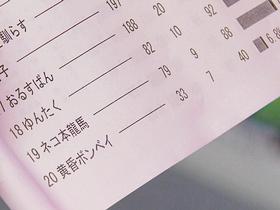 馴らす
子 197
おるすばん 188 20
18 ゆんたく 82 10 92
19 ネコ本龍馬 79 9 88
20 黄昏ボンベイ 33 7 40